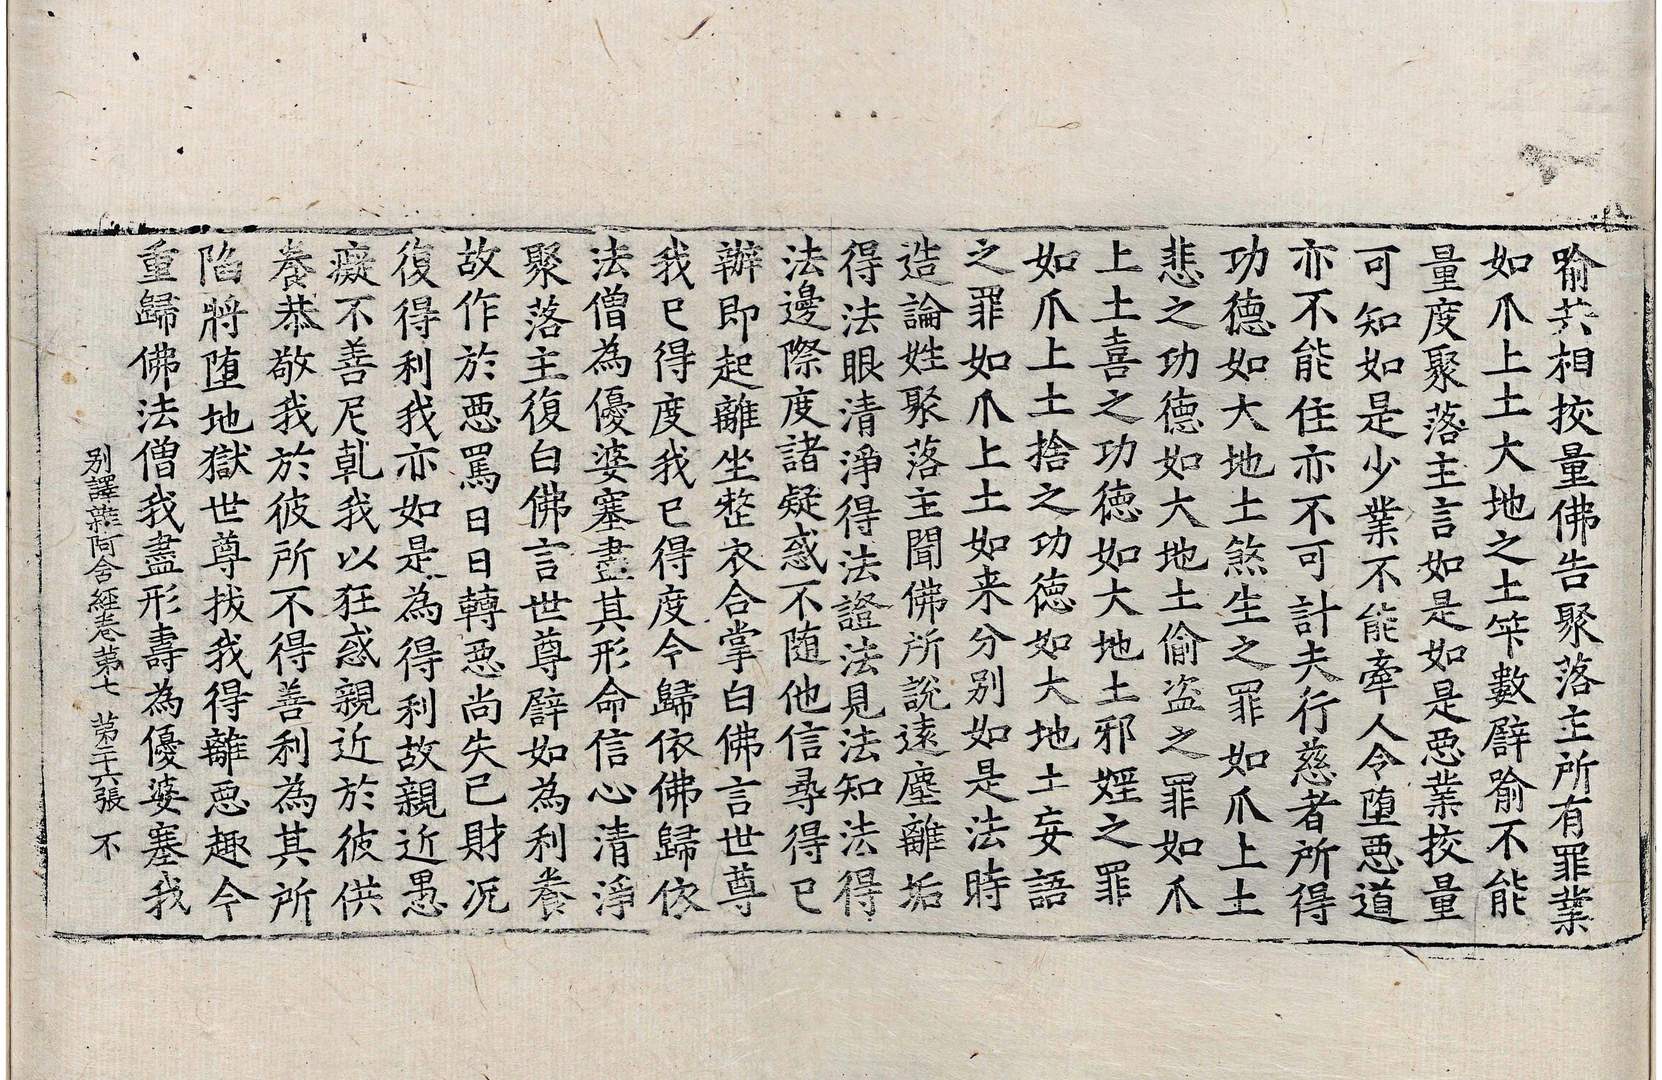 喻共相挍量佛告聚落主所有罪業
如爪上土大地之土筭數譬喻不能
量度聚落主言如是如是惡業挍量
可知如是少業不能牽人令堕惡道
亦不能住亦不可計夫行慈者所得
功德如大地土煞生之罪如爪上土
悲之功德如大地土偷盗之罪如爪
上土喜之功德如大地土邪婬之罪
如爪上土捨之功德如大地土妄語
之罪如爪上土如来分别如是法時
造論姓聚落主聞佛所說遠塵離垢
得法眼清淨得法證法見法知法得
法邊際度諸疑惑不随他信尋得已
辦即起離坐整衣合掌白佛言世尊
我已得度我已得度今歸依佛歸依
法僧為優婆塞盡其形命信心清淨
聚落主復白佛言世尊譬如為利養
故作於惡罵日日轉惡尚失已財况
復得利我亦如是為得利故親近愚
癡不善尼乹我以狂惑親近於彼供
養恭敬我於彼所不得善利為其所
陷將堕地獄世尊拔我得離惡趣今
重歸佛法僧我盡形壽為優婆塞我
别譯雜阿含經卷第七 第二十六張 不